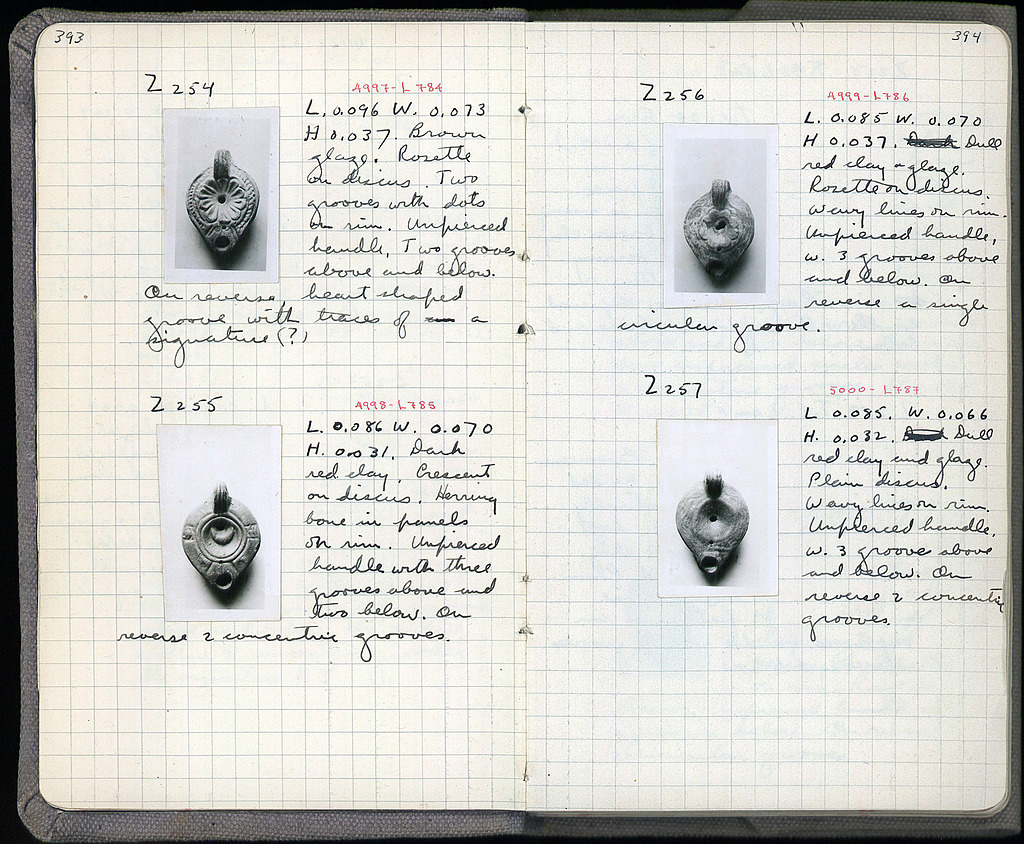 393
Z 254
4997-L 784
L. 0.096 W. 0.073
H 0.037. Brown
glaze. Rosette
on discus. Two
grooves with dots
on rim. Unpierced
handle, Two grooves
above and below.
On reverse, heart shaped
groove with traces of a
signature (?)
Z 255
4998-L785
L. 0.086 W. 0.070
H. 0.031. Dark
red clay. Crescent
on discus. Herring
bone in panels
on rim. Unpierced
handle with three
grooves above and
two below. On
reverse 2 concentric grooves.
394
Z 256
4999-L786
L. 0.085 W. 0.070
H 0.037. Dark Dull
red clay & glaze.
Rosette on discus.
Wavy lines on rim.
Unpierced handle,
w. 3 grooves above
and below. On
reverse a single
circular groove.
Z 257
5000-L787
L 0.085. W. 0.066
H. 0.032. Dull
red clay and glaze.
Plain discus.
Wavy lines on rim.
Unpierced handle,
w. 3 grooves above
and below. On
reverse 2 concentric
grooves.